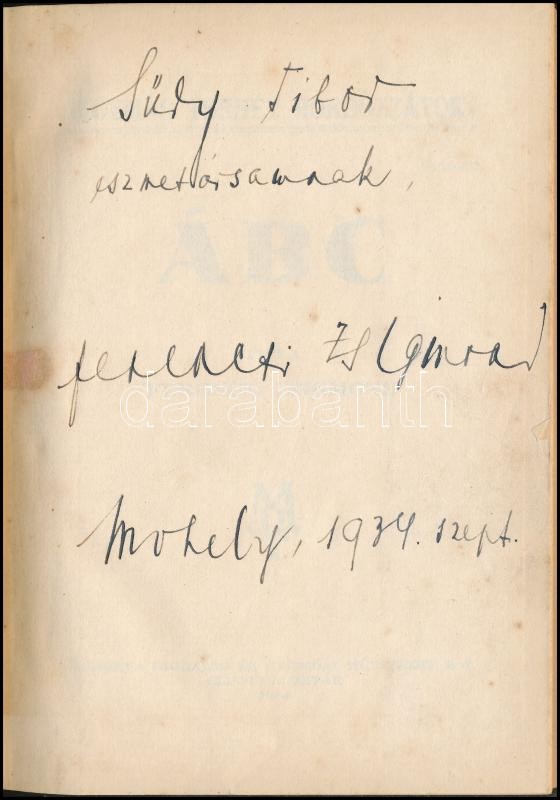 Südy Tibor
eszmetársamnak,
ÁBC
ferenczi Zsigmond
darabanth
Mohely, 1934. szept.